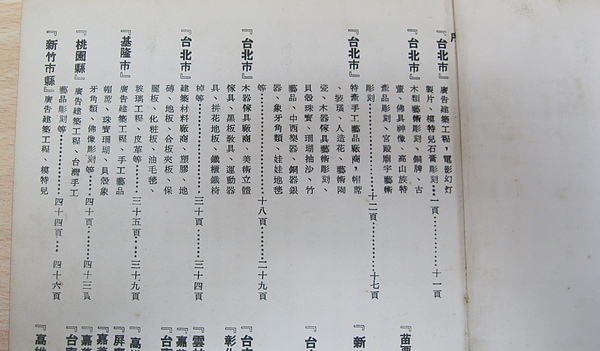 『台北市』廣告建築工程、電影幻灯
製片、模特兒石膏彫刻一頁………十一頁
『台北市』木類藝術彫刻、銅牌、古
董、佛具神像、高山族特
產品彫刻、宮殿廟宇藝術
彫刻………十二頁………十七頁
『台北市』特產手工藝品廠商，帽蓆
、製瑛、人造花、藝術陶
瓷、木器傢具藝術彫刻、
貝殼珠寶、珊瑚抽沙、竹
藝品、中西樂器、銅器銀
器、象牙角類、娃娃地毯
等………十八頁………二十九頁
『台北市』木器傢具廠商、美術立體
傢具、黑板教具、運動器
具、拼花地板、鐵櫃鐵椅
棹等………三十頁………三十四頁
『台北市』建築材料廠商、塑膠、地
磚、地板、合板夾板、保
麗板、化粧板、油毛毯、
玻璃工程、皮革等………三十五頁………三十九頁
『基隆市』廣告建築工程、手工藝品
帽蓆、珠寶珊瑚、貝殼象
牙角類、佛像彫刻等………四十頁………四十三頁
『桃園縣』廣告建築工程、台灣手工
藝品彫刻等………四十四頁………四十六頁
『新竹市縣』廣告建築工程、模特兒
『苗栗
『新
『台
『台
『彰化
『雲林
『嘉義
『台南
『高雄
『屏東
『嘉義
『嘉義
『台南
『高雄